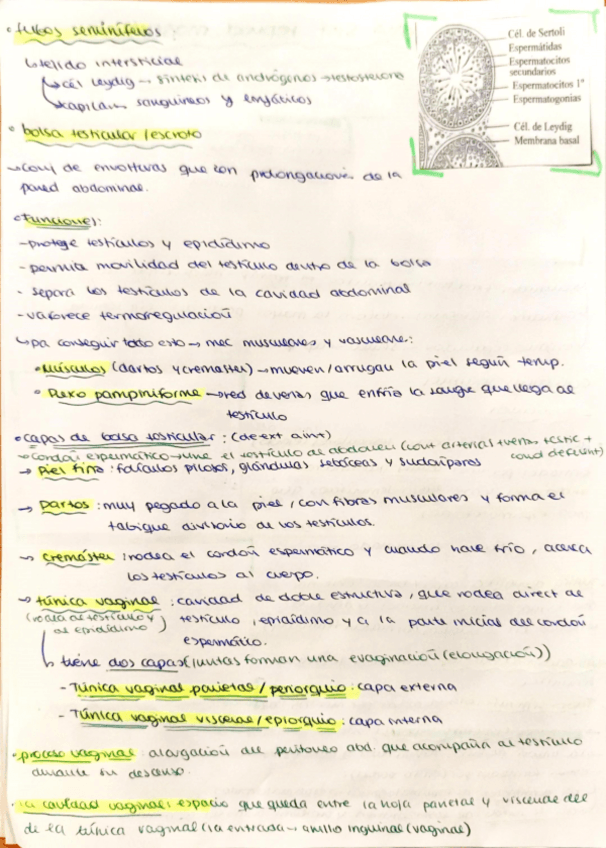 • tubos seminíferos
↳ tejido intersticial
↳ cél Leydig → síntesis de andrógenos → testosterona
↳ capilares sanguíneos y linfáticos
Cél. de Sertoli
Espermátidas
Espermatocitos
secundarios
Espermatocitos 1º
Espermatogonias
Cél. de Leydig
Membrana basal
• bolsa testicular / escroto
→ conj de envolturas que son prolongaciones de la
pared abdominal.
• Funciones:
- protege testículos y epidídimo
- permite movilidad del testículo dentro de la bolsa
- separa los testículos de la cavidad abdominal
- vaforece termorregulación
↳ pa conseguir todo esto → mec musculares y vasculares:
• Músculos (dartos y cremaster) → mueven/arrugan la piel según temp.
• Plexo pampiniforme → red de venas que enfría la sangre que llega al
testículo
• capas de bolsa testicular: (de ext a int)
→ cordón espermático → une el testículo de abdomen (cont arterias + venas testic +
cond deferent)
→ piel fina: folículos pilosos, glándulas sebáceas y sudoríparas
→ Dartos: muy pegado a la piel, con fibras musculares y forma el
tabique divisorio de los testículos.
→ cremáster: rodea el cordón espermático y cuando hace frío, acerca
los testículos al cuerpo.
→ túnica vaginal: cavidad de doble estructura, que rodea direct al
(rodea al testículo y
al epidídimo)
testículo, epidídimo y a la parte inicial del cordón
espermático.
↳ tiene dos capas (juntas forman una evaginación (elongación))
- Túnica vaginal parietal / periorquio: capa externa
- Túnica vaginal visceral / epiorquio: capa interna
• proceso vaginal: alargación del peritoneo abd. que acompaña al testículo
durante su descenso.
• la cavidad vaginal: espacio que queda entre la hoja parietal y visceral del
de la túnica vaginal (la entrada → anillo inguinal (vaginal)